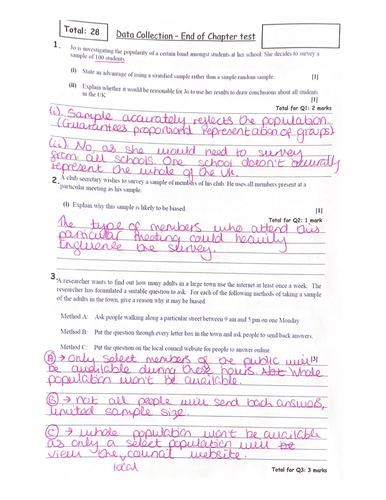 Total: 28
Data Collection – End of Chapter test
1.
Jo is investigating the popularity of a certain band amongst students at her school. She decides to survey a
sample of 100 students.
(i) State an advantage of using a stratified sample rather than a simple random sample. [1]
(ii) Explain whether it would be reasonable for Jo to use her results to draw conclusions about all students
in the UK. [1]
Total for Q1: 2 marks
(i). Sample accurately reflects the population.
(Guarantees proportional representation of groups)
(ii). No, as she would need to survey
from all schools. One school doesn't
represent the whole of the UK.
2.
A club secretary wishes to survey a sample of members of his club. He uses all members present at a
particular meeting as his sample.
(i) Explain why this sample is likely to be biased. [1]
Total for Q2: 1 mark
The type of members who attend this
particular meeting could heavily
influence the survey.
3.
A researcher wants to find out how many adults in a large town use the internet at least once a week. The
researcher has formulated a suitable question to ask. For each of the following methods of taking a sample
of the adults in the town, give a reason why it may be biased.
Method A: Ask people walking along a particular street between 9 am and 5 pm on one Monday.
Method B: Put the question through every letter box in the town and ask people to send back answers.
Method C: Put the question on the local council website for people to answer online.
[3]
A → only select members of the public will
be available during those hours. Not whole
population won't be available.
B → not all people will send back answers,
limited sample size.
C → whole population won't be available
as only a select population will
view the local council website.
Total for Q3: 3 marks